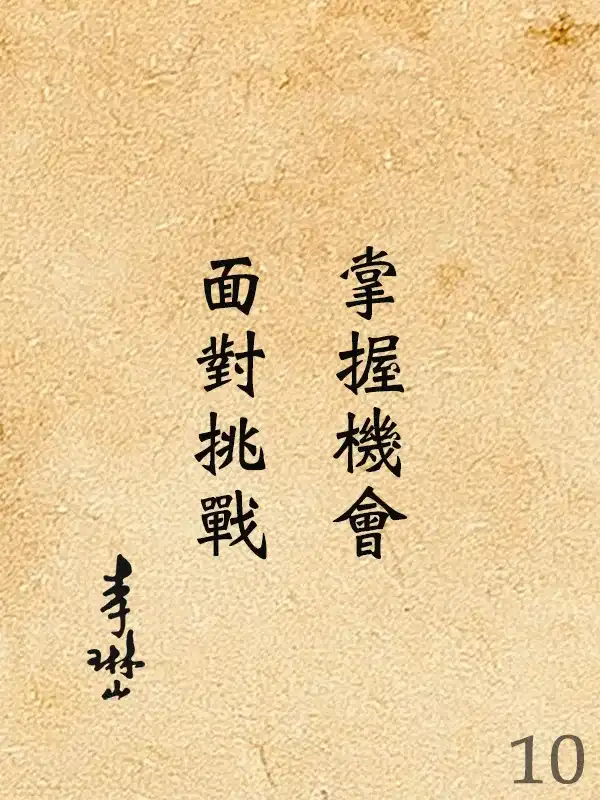 掌握機會
面對挑戰
李琳山
10